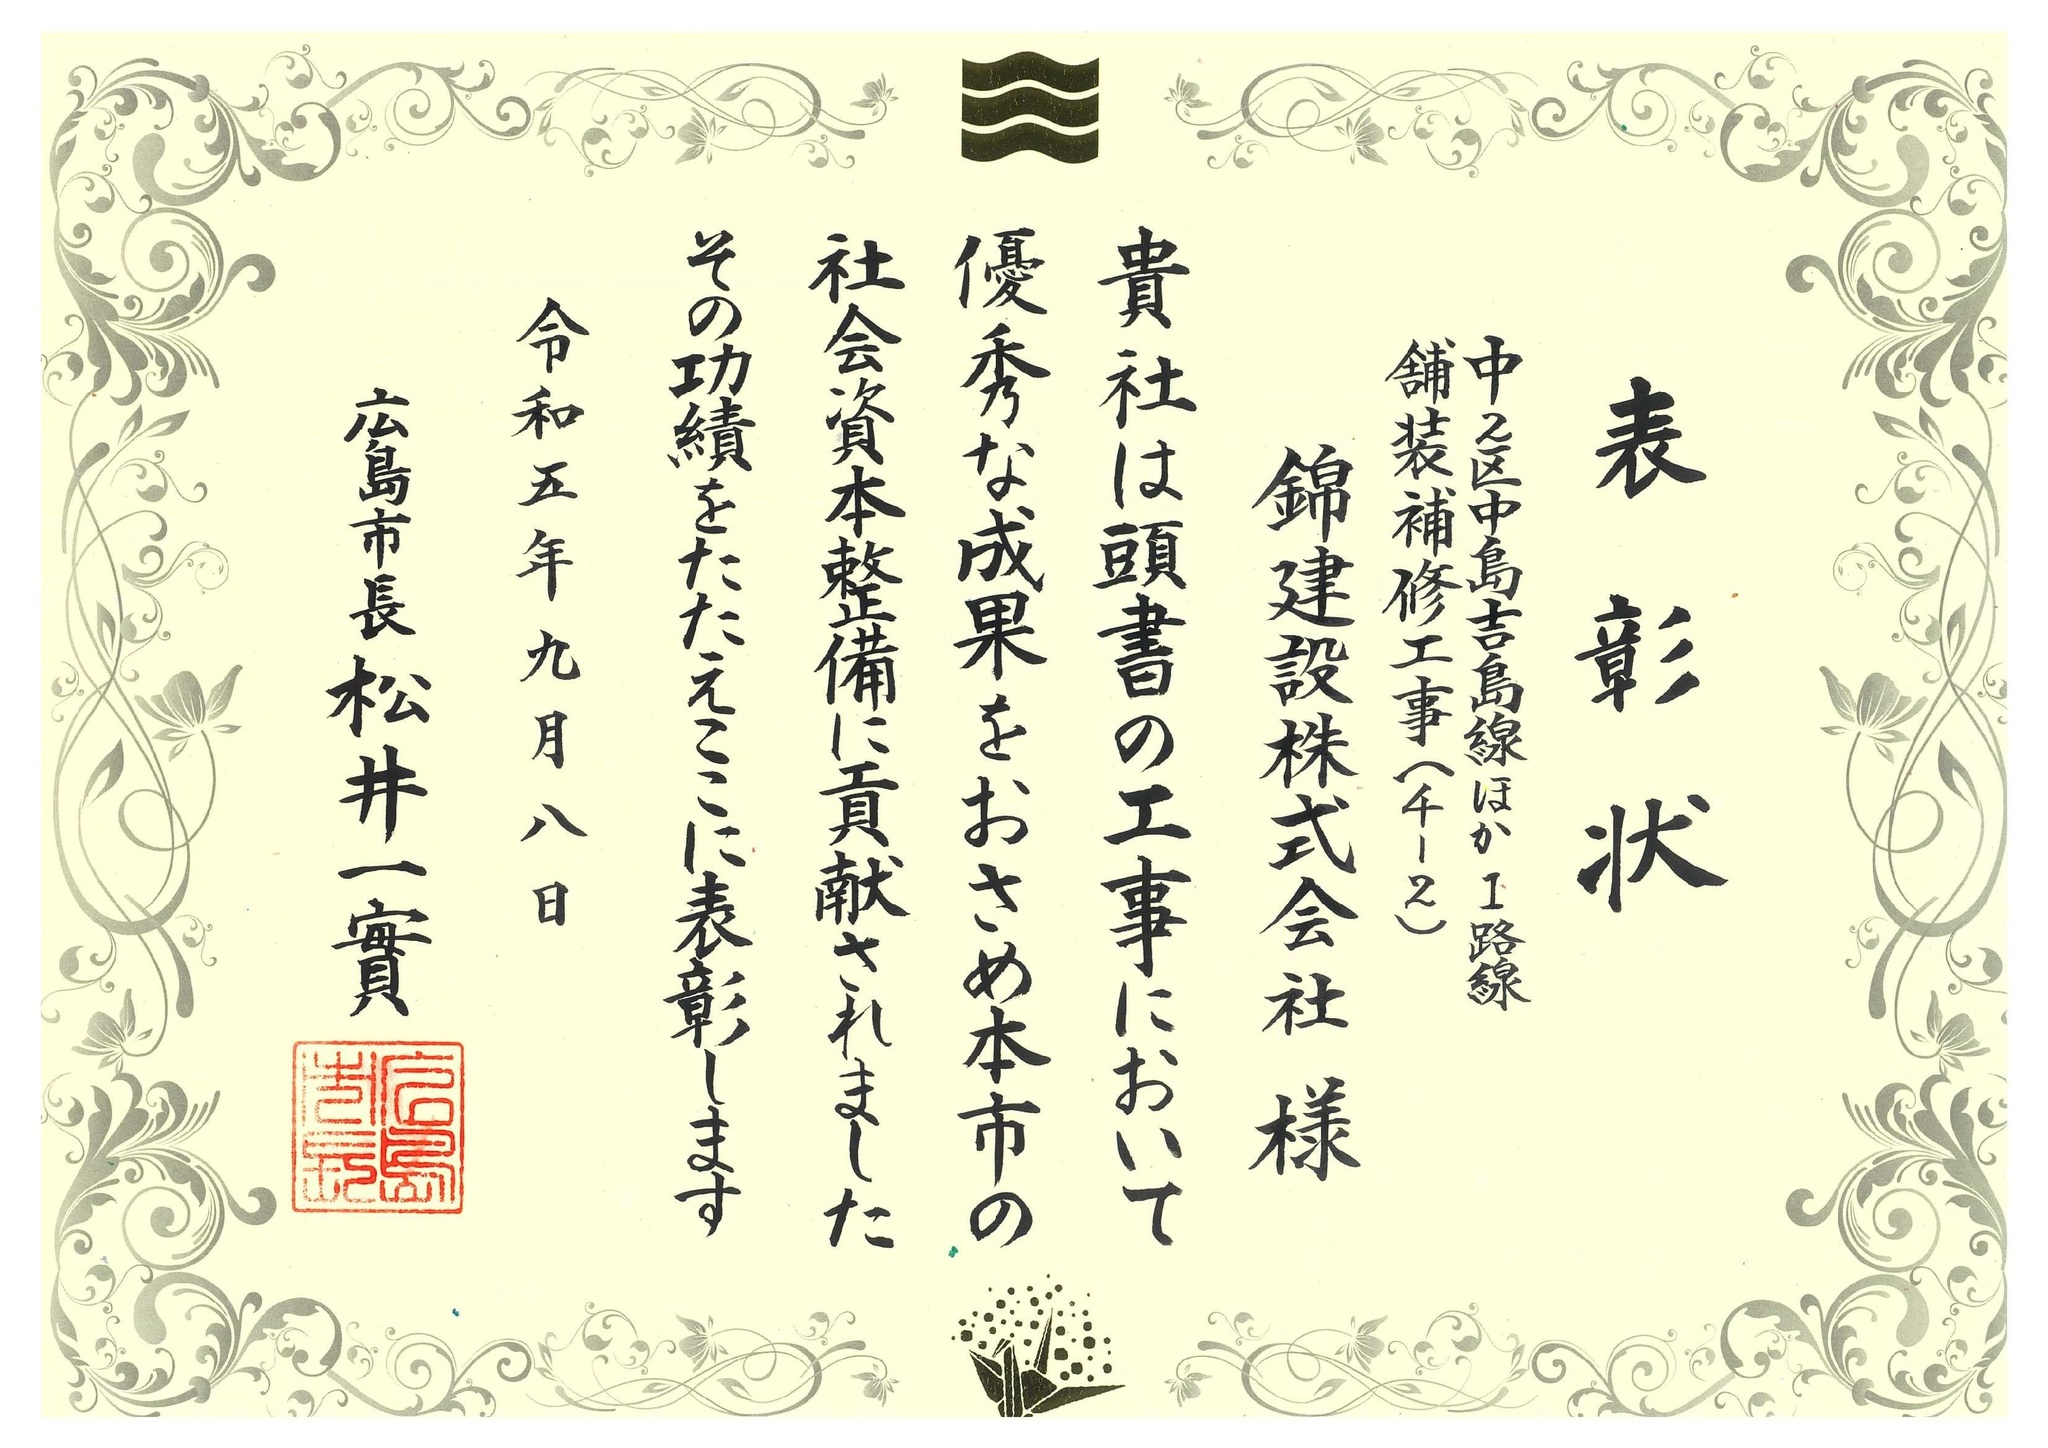 表彰状
中2区中島吉島線ほか1路線
舗装補修工事(チー2)
錦建設株式会社 様
貴社は頭書の工事において
優秀な成果をおさめ本市の
社会資本整備に貢献されました
その功績をたたえここに表彰します
令和五年九月八日
広島市長 松井一實
広島
市長印